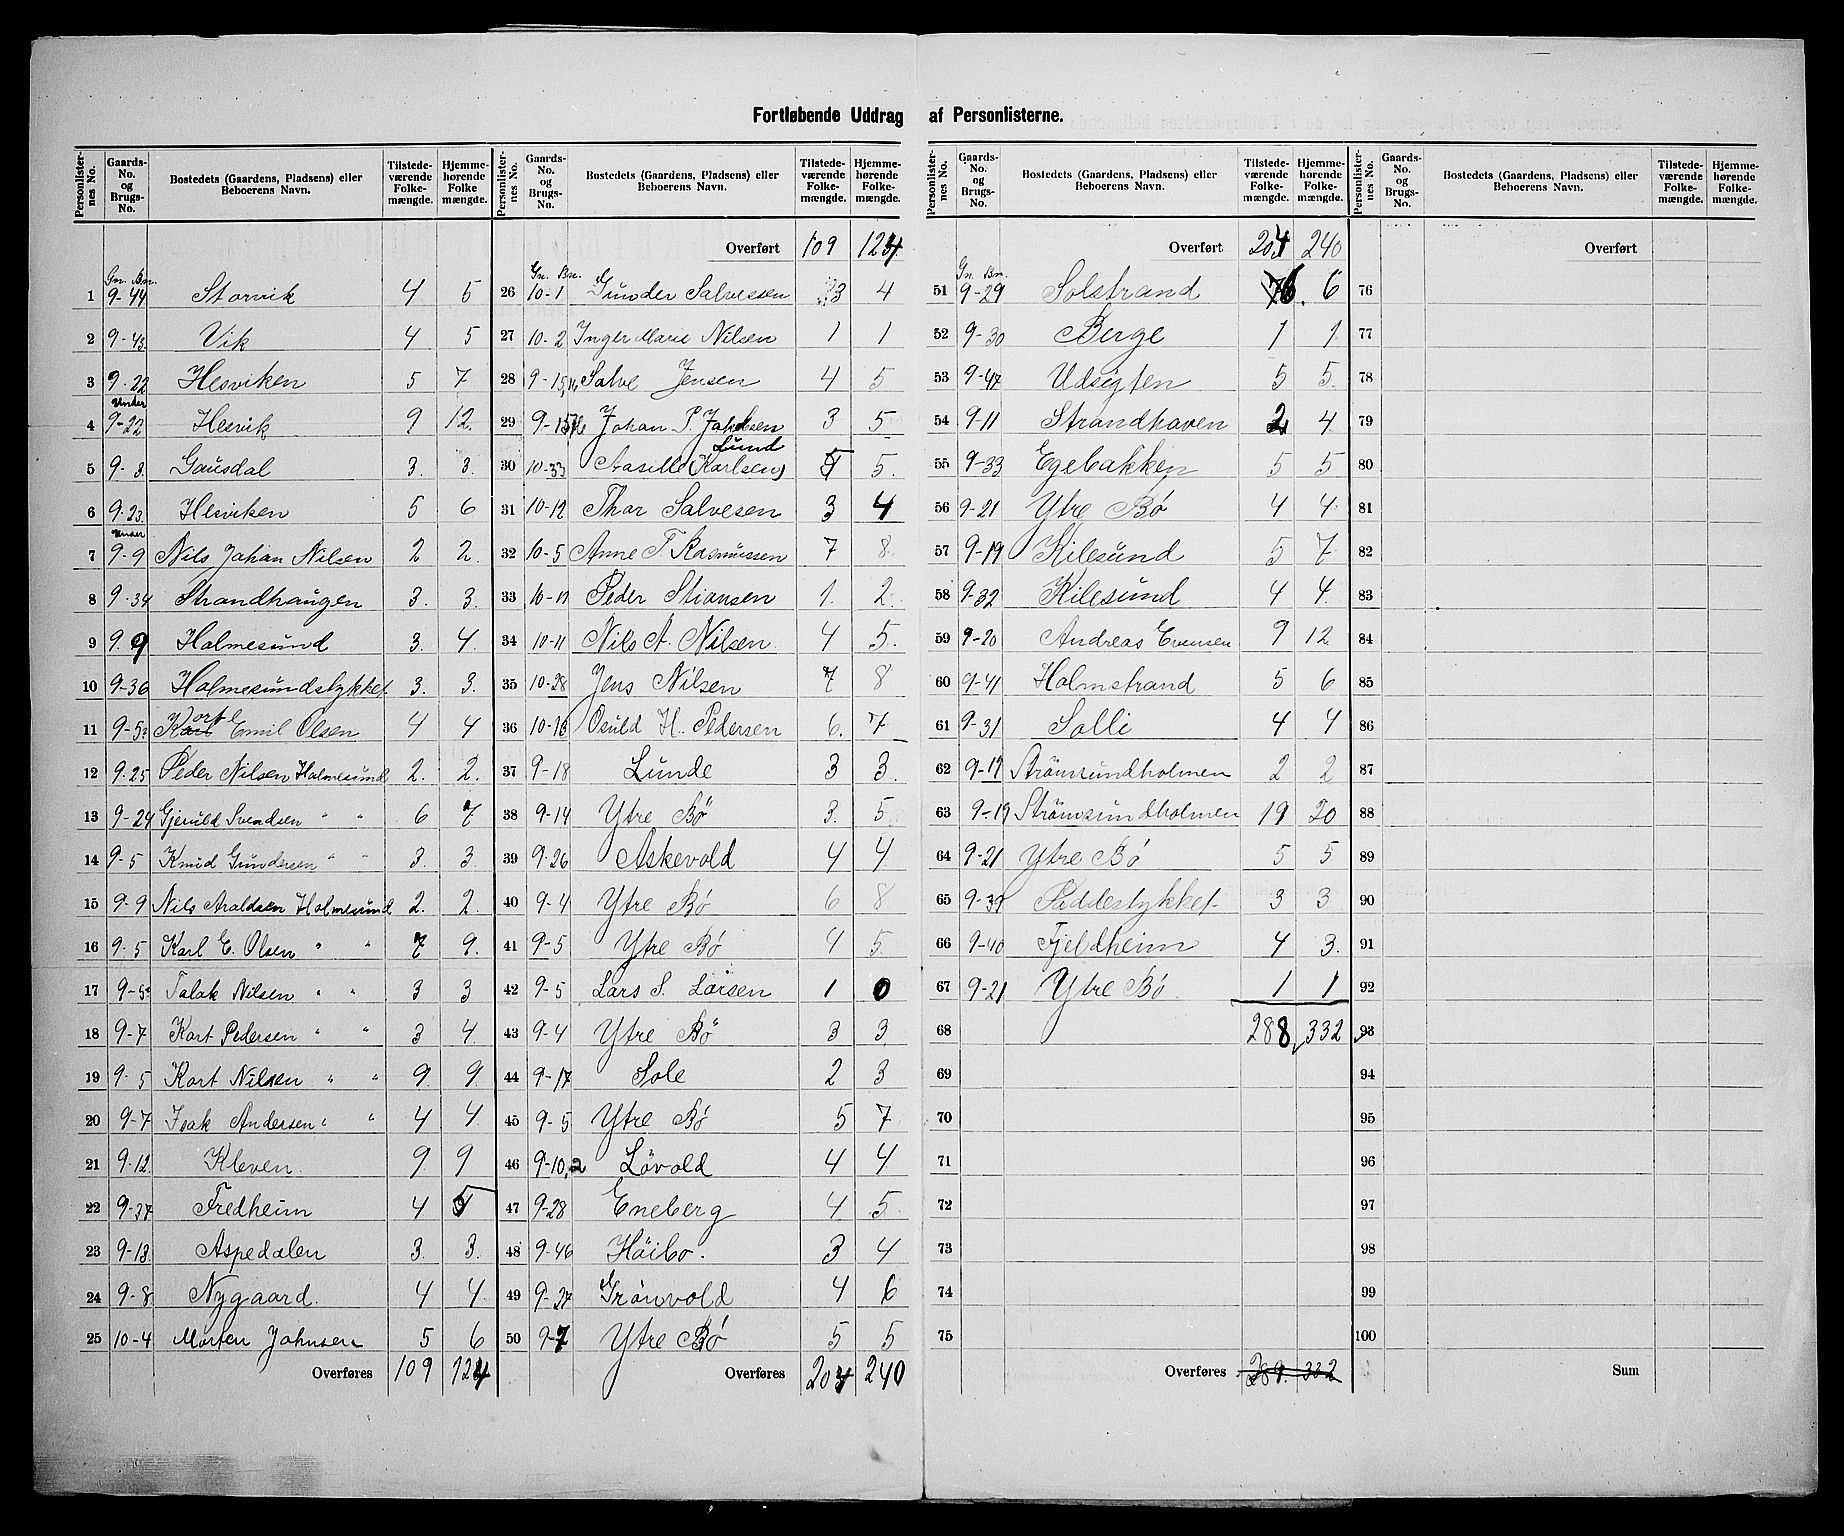 Fortløbende Uddrag af Personlisterne.
Personlister-nes No. Gaards-No. og Brugs-No. Bostedets (Gaardens, Pladsens) eller Beboerens Navn. Tilstede-værende Folke-mængde. Hjemme-hørende Folke mængde.
Gn. Bn.
1 9-44 Storvik 4 5
2 9-43 Vik 4 5
3 9-22 Hesviken 5 7
Under
4 9-22 Hesvik 9 12
5 9-3 Gausdal 3. 3.
6 9-23 Hesviken 5 6
Under
7 9-9 Nils Johan Nilsen 2 2.
8 9-34 Strandhaugen 3. 3.
9 9.9 Holmesund 3. 4.
10 9-36 Holmesundstykket 3. 3.
11 9-5 Kort Emil Olsen 4 4
12 9.25 Peder Nilsen Holmesund 2. 2.
13 9-24 Gjeruld Svendsen " " 6 7
14 9-5 Knud Gundersen " " 3. 3.
15 9-9 Nils Araldsen Holmesund 2. 2.
16 9-5 Karl E. Olsen " " 7 9.
17 9-5 Talak Nilsen " " 3 3
18 9-7 Kort Pedersen " " 3 4.
19 9-5 Kort Nilsen " " 9. 9.
20 9-7 Isak Andersen " " 4 4
21 9-12 Kleven. 9. 9
22 9-37 Fredheim 4 5
23 9-13 Aspedalen 3. 3.
24 9-8 Nygaard. 4 4.
25 10-4 Morten Johnsen 5 6
Overføres 109 124
Personlister-nes No. Gaards-No. og Brugs-No. Bostedets (Gaardens, Pladsens) eller Beboerens Navn. Tilstede-værende Folke-mængde. Hjemme-hørende Folke-mængde.
Overført 109 124.
Gn. Bn.
26 10-1 Gunder Salvesen 3 4
27 10-2 Inger Marie Nilsen 1 1
28 9-15,16 Salve Jensen 4 5
29 Johan P. 3 5
Lund
30 10-33 Aasille (Karlsen) 5.
31 10-12 Thor Salvesen 3 4
32 10-5 Anne T. Rasmussen 7 8.
33 Peder Stiansen 1. 2.
34 10-11 Nils A. Nilsen. 4 5.
35 10-28 Jens Nilsen 7 8
36 10-16 Osuld H. Pedersen 6. 7
37 9-18 Lunde 3 3.
38 9-14 Ytre Bö 3. 5
39 9.26 Askevold 4 4.
40 9-4 Ytre Bö 6 8
41 9-5 Ytre Bö 4 5.
42 9-5 Lars S. Larsen 1 0
43 9-4 Ytre Bö 3 3.
44 9-17 Sole 2 3
45 9-5 Ytre Bö 5 7
46 9-10,2 Lövold 4 4
47 9-28 Eneberg 4 5.
48 9-46 Höibo. 3 4
49 9-27 Grönvold 4 6
50 9-7 Ytre Bö 5 5
Overføres 204 240
Personlister-nes No. Gaards-No. og Brugs-No. Bostedets (Gaardens, Pladsens) eller Beboerens Navn. Tilstede-værende Folke-mængde. Hjemme-hørende Folke-mængde.
Overført 204 240
Gn. Bn.
51 9-29 Solstrand 6. 6
52 9-30 Berge 1 1
53 9-47 Udsigten 5 5.
54 9-11 Strandhaven 2 4
55 9-33 Egebakken 5 5
56 9-21 Ytre Bö 4 4.
57 9-19 Kilesund 5 7
58 9-32 Kilesund 4 4.
59 9-20 Andreas Evensen 9 12
60 9-41 Holmstrand 5 6
61 9-31 Solli 4 4
62 9-19 Strömsundholmen 2 2
63 9-19 Strömsundholmen 19 20
64 9-21 Ytre Bö 5 5
65 9-39 Paddestykket 3 3
66 9-40 Fjeldheim 4 3.
67 9-21 Ytre Bö. 1 1
68 288 332
69
70
71
72
73
74
75
Overføres 289. 332
Personlister-nes No. Gaards-No. og Brugs-No. Bostedets (Gaardens, Pladsens) eller Beboerens Navn. Tilstede-værende Folke-mængde. Hjemme-hørende Folke-mængde.
Overført
76
77
78
79
80
81
82
83
84
85
86
87
88
89
90
91
92
93
94
95
96
97
98
99
100
Sum